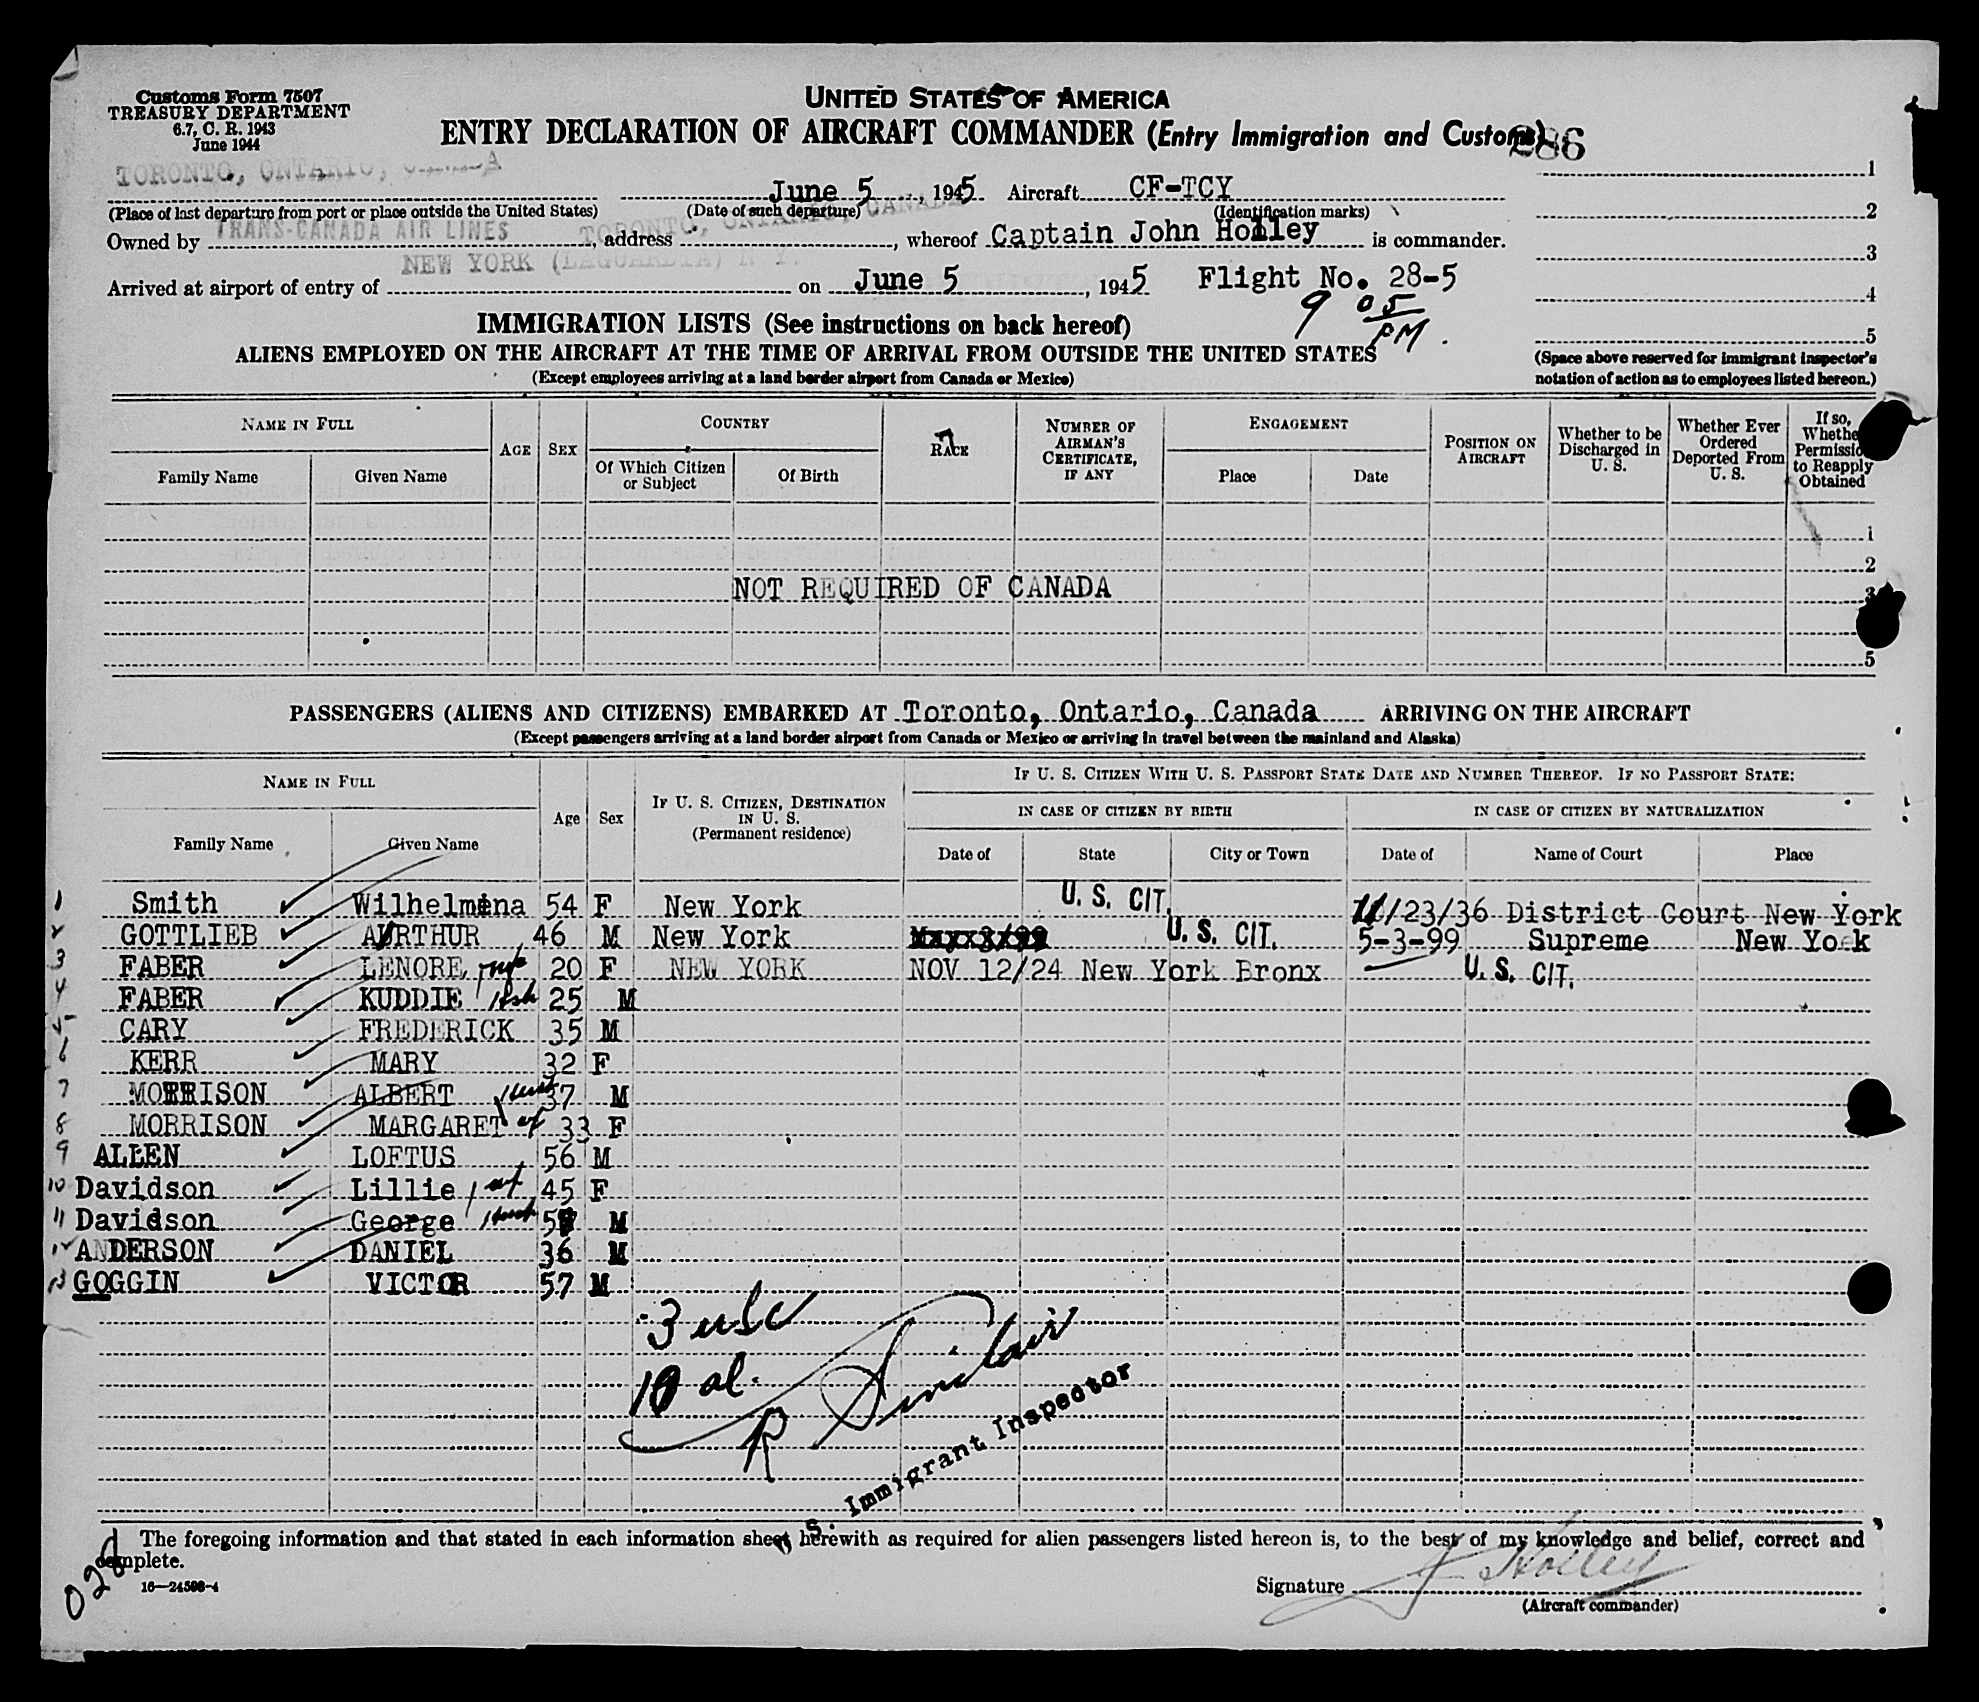 Customs Form 7507
TREASURY DEPARTMENT
6.7, C. R. 1943
June 1944
UNITED STATES OF AMERICA
ENTRY DECLARATION OF AIRCRAFT COMMANDER (Entry Immigration and Customs)
286
TORONTO, ONTARIO, June 5, 1945 Aircraft CF-TCY
(Place of last departure from port or place outside the United States) (Date of such departure) (Identification marks)
Owned by TRANS-CANADA AIR LINES, address TORONTO, ONTARIO, CANADA, whereof Captain John Holley is commander.
Arrived at airport of entry of NEW YORK (LAGUARDIA) N Y. on June 5, 1945 Flight No. 28-5
9 05 PM.
1
2
3
4
5
(Space above reserved for immigrant inspector's notation of action as to employees listed hereon.)
IMMIGRATION LISTS (See instructions on back hereof)
ALIENS EMPLOYED ON THE AIRCRAFT AT THE TIME OF ARRIVAL FROM OUTSIDE THE UNITED STATES
(Except employees arriving at a land border airport from Canada or Mexico)
NAME IN FULL AGE SEX COUNTRY RACE NUMBER OF AIRMAN'S CERTIFICATE, IF ANY ENGAGEMENT POSITION ON AIRCRAFT Whether to be Discharged in U. S. Whether Ever Ordered Deported From U. S. If so, Whether Permission to Reapply Obtained
Family Name Given Name Of Which Citizen or Subject Of Birth Place Date
1
2
NOT REQUIRED OF CANADA 3
5
PASSENGERS (ALIENS AND CITIZENS) EMBARKED AT Toronto, Ontario, Canada ARRIVING ON THE AIRCRAFT
(Except passengers arriving at a land border airport from Canada or Mexico or arriving in travel between the mainland and Alaska)
NAME IN FULL Age Sex IF U. S. CITIZEN, DESTINATION IN U. S. (Permanent residence) IF U. S. CITIZEN WITH U. S. PASSPORT STATE DATE AND NUMBER THEREOF. IF NO PASSPORT STATE:
IN CASE OF CITIZEN BY BIRTH IN CASE OF CITIZEN BY NATURALIZATION
Family Name Given Name Date of State City or Town Date of Name of Court Place
1 Smith Wilhelmina 54 F New York U. S. CIT. 11/23/36 District Court New York
2 GOTTLIEB ARTHUR 46 M New York U. S. CIT. 5-3-99 Supreme New York
3 FABER LENORE wife 20 F NEW YORK NOV 12/24 New York Bronx U. S. CIT.
4 FABER KUDDIE Hsb 25 M
5 CARY FREDERICK 35 M
6 KERR MARY 32 F
7 MORRISON ALBERT Husb 37 M
8 MORRISON MARGARET wf 33 F
9 ALLEN LOFTUS 56 M
10 Davidson Lillie wf 45 F
11 Davidson George Husb M
12 ANDERSON DANIEL 36 M
13 GOGGIN VICTOR 57 M
3 usc
10 al.
R Sinclair
S. Immigrant Inspector
The foregoing information and that stated in each information sheet, herewith as required for alien passengers listed hereon is, to the best of my knowledge and belief, correct and
complete.
028
16—24598-4
Signature J Holley
(Aircraft commander)